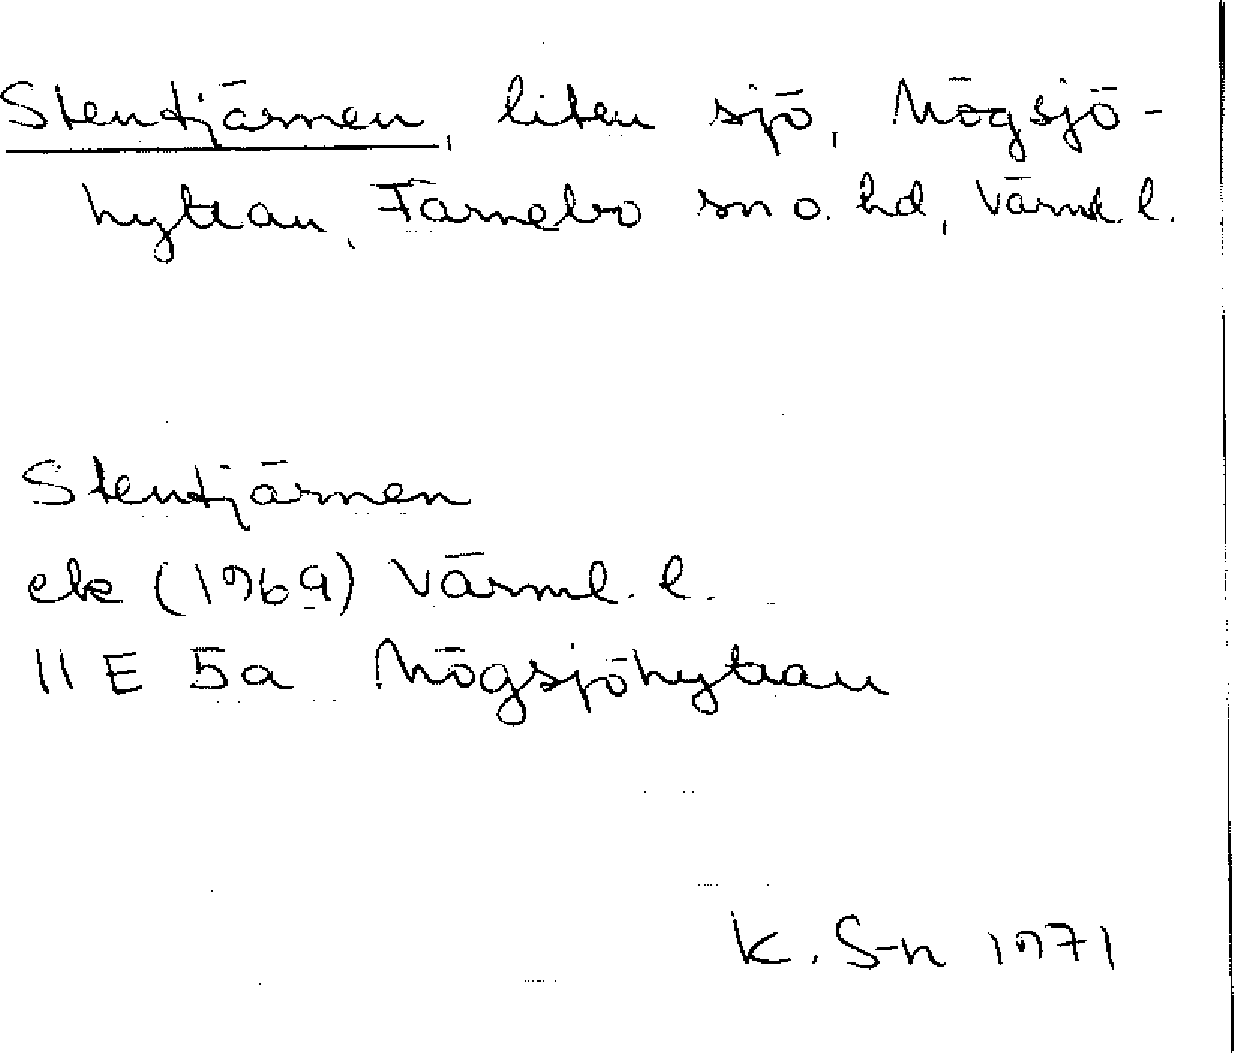 Stentjärnen, liten sjö, Mögsjö-
hyttan, Färnebo sn o. hd, Värml. l.
Stentjärnen
ek (1969) Värml. l.
11 E 5a Mögsjöhyttan
K. S-n 1971